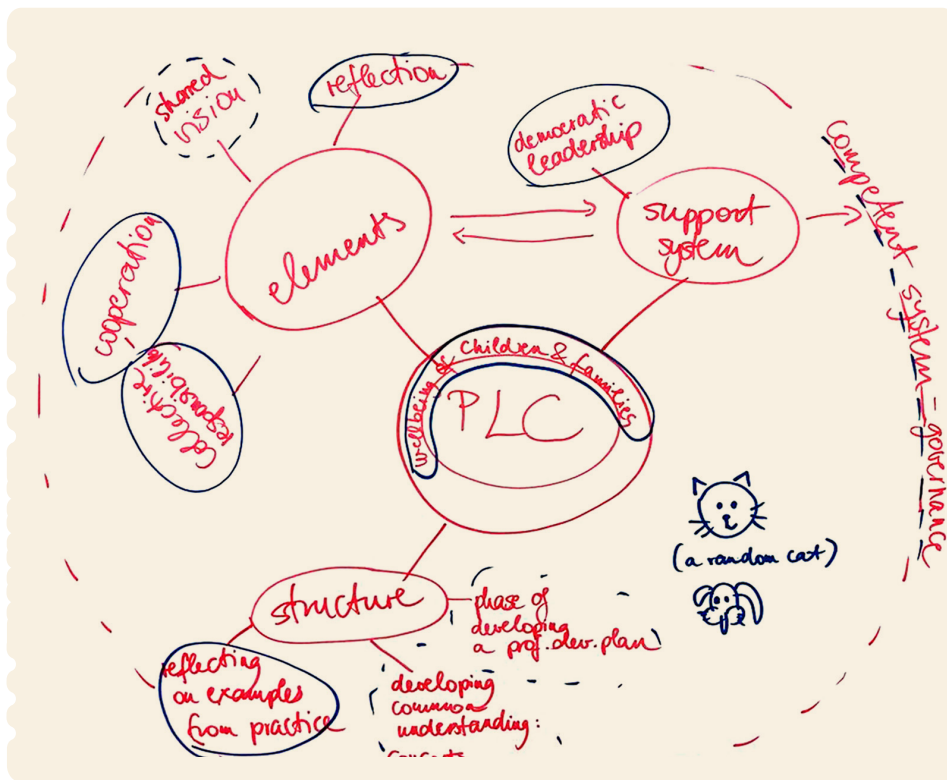 shared
vision
reflection
democratic
leadership
cooperation
elements
support
system
competent system = governance
collective
responsibility
wellbeing of children & families
PLC
(a random cat)
structure
phase of
developing
a prof. dev. plan
reflecting
on examples
from practice
developing
common
understanding: